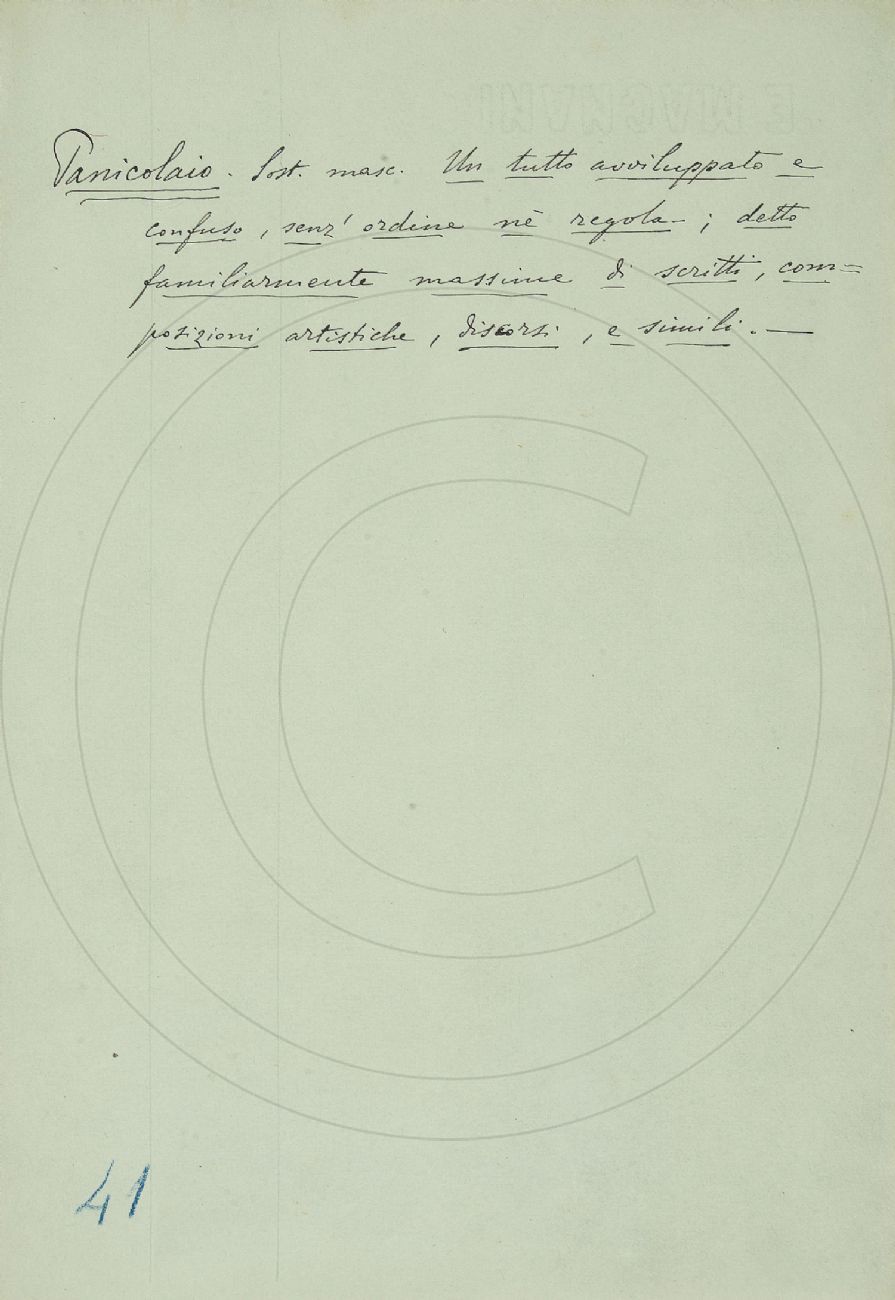 Panicolaio. Sost. masc. Un tutto avviluppato e
confuso, senz' ordine nè regola; detto
familiarmente massime di scritti, com=
posizioni artistiche, discorsi, e simili. —
41